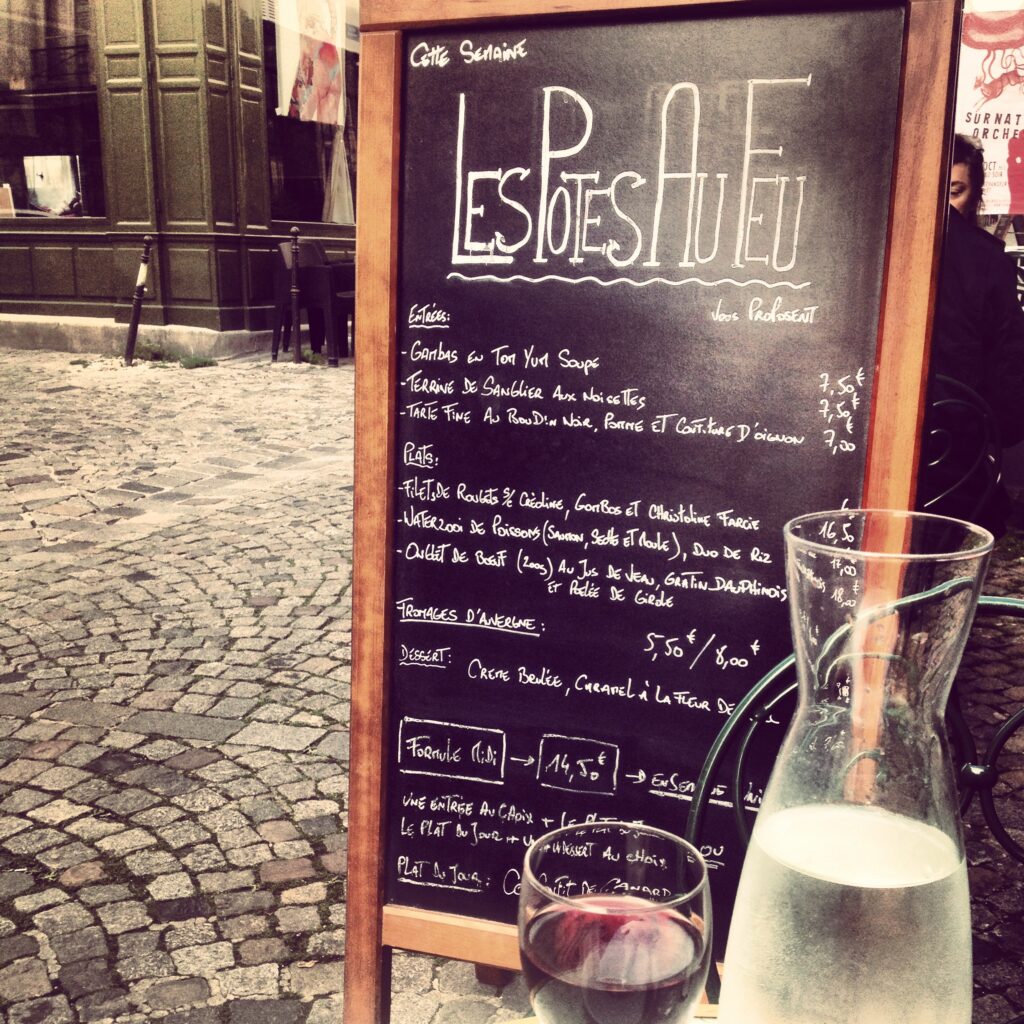 CETTE SEMAINE
LES POTES AU FEU
VOUS PROPOSENT
ENTRÉES:
- GAMBAS EN TOM YUM SOUPE 7,50€
- TERRINE DE SANGLIER AUX NOISETTES 7,50€
- TARTE FINE AU BOUDIN NOIR, POMME ET CONFITURE D'OIGNON 7,00
PLATS:
- FILETS DE ROUGETS S/C CRÉOLINE, GOMBOS ET CHRISTOLINE FARCIE 16,50
- WATERZOOI DE POISSONS (SAUMON, SEICHE ET MOULE), DUO DE RIZ 17,00
- ONGLET DE BŒUF (200G) AU JUS DE VEAU, GRATIN DAUPHINOIS 18,00
ET POÊLÉE DE GIROLE
FROMAGES D'AUVERGNE: 5,50€/8,00€
DESSERT: CRÈME BRULÉE, CARAMEL À LA FLEUR DE
FORMULE MIDI → 14,50€ → EN SEMAINE
UNE ENTRÉE AU CHOIX + LE PLAT OU
LE PLAT DU JOUR + UN DESSERT AU CHOIX
PLAT DU JOUR: CONFIT DE CANARD
SURNAT
ORCHE
OCT